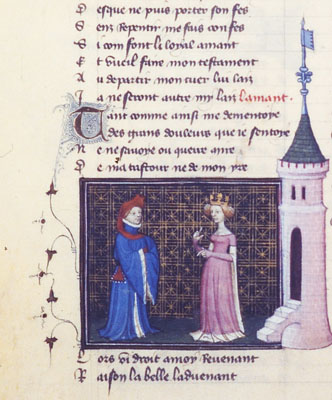 Desque ne puis porter son fes
Senz Repentir me fais confes
Si com font li loyal amant
Et vueil faire mon testament
Au departir mon cuer lui lais
Ja ne seront autre my lais lamant.
Tant comme ainsi me dementoye
des grans douleurs que ie sentoye
Ne ne savoye ou querre mire
De ma tristour ne de mon yre
Lors vi droit amoy Revenant
Raison la belle ladvenant